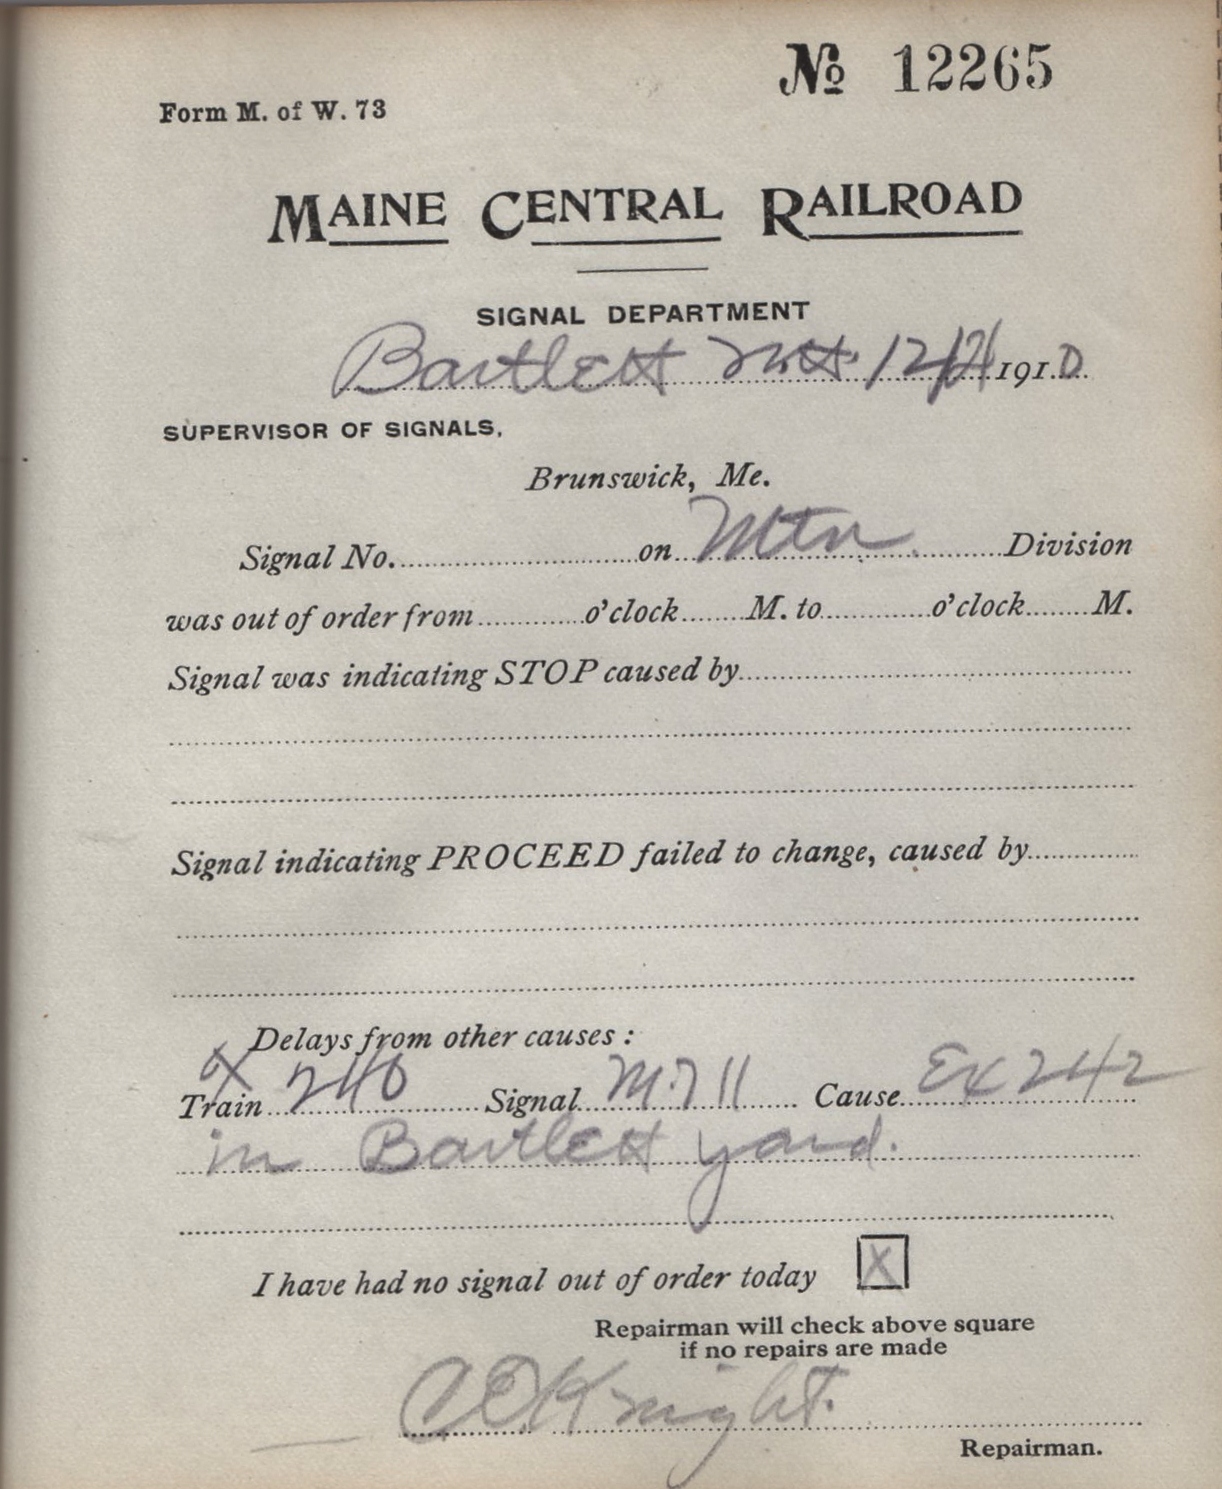 № 12265
Form M. of W. 73
MAINE CENTRAL RAILROAD
SIGNAL DEPARTMENT
Bartlett NH. 12/21 1910
SUPERVISOR OF SIGNALS,
Brunswick, Me.
Signal No. on Mtn Division
was out of order from o'clock M. to o'clock M.
Signal was indicating STOP caused by
Signal indicating PROCEED failed to change, caused by
Delays from other causes :
X
Train 240 Signal M.711 Cause Ex 242
in Bartlett yard.
I have had no signal out of order today X
Repairman will check above square
if no repairs are made
CE Knight.
Repairman.